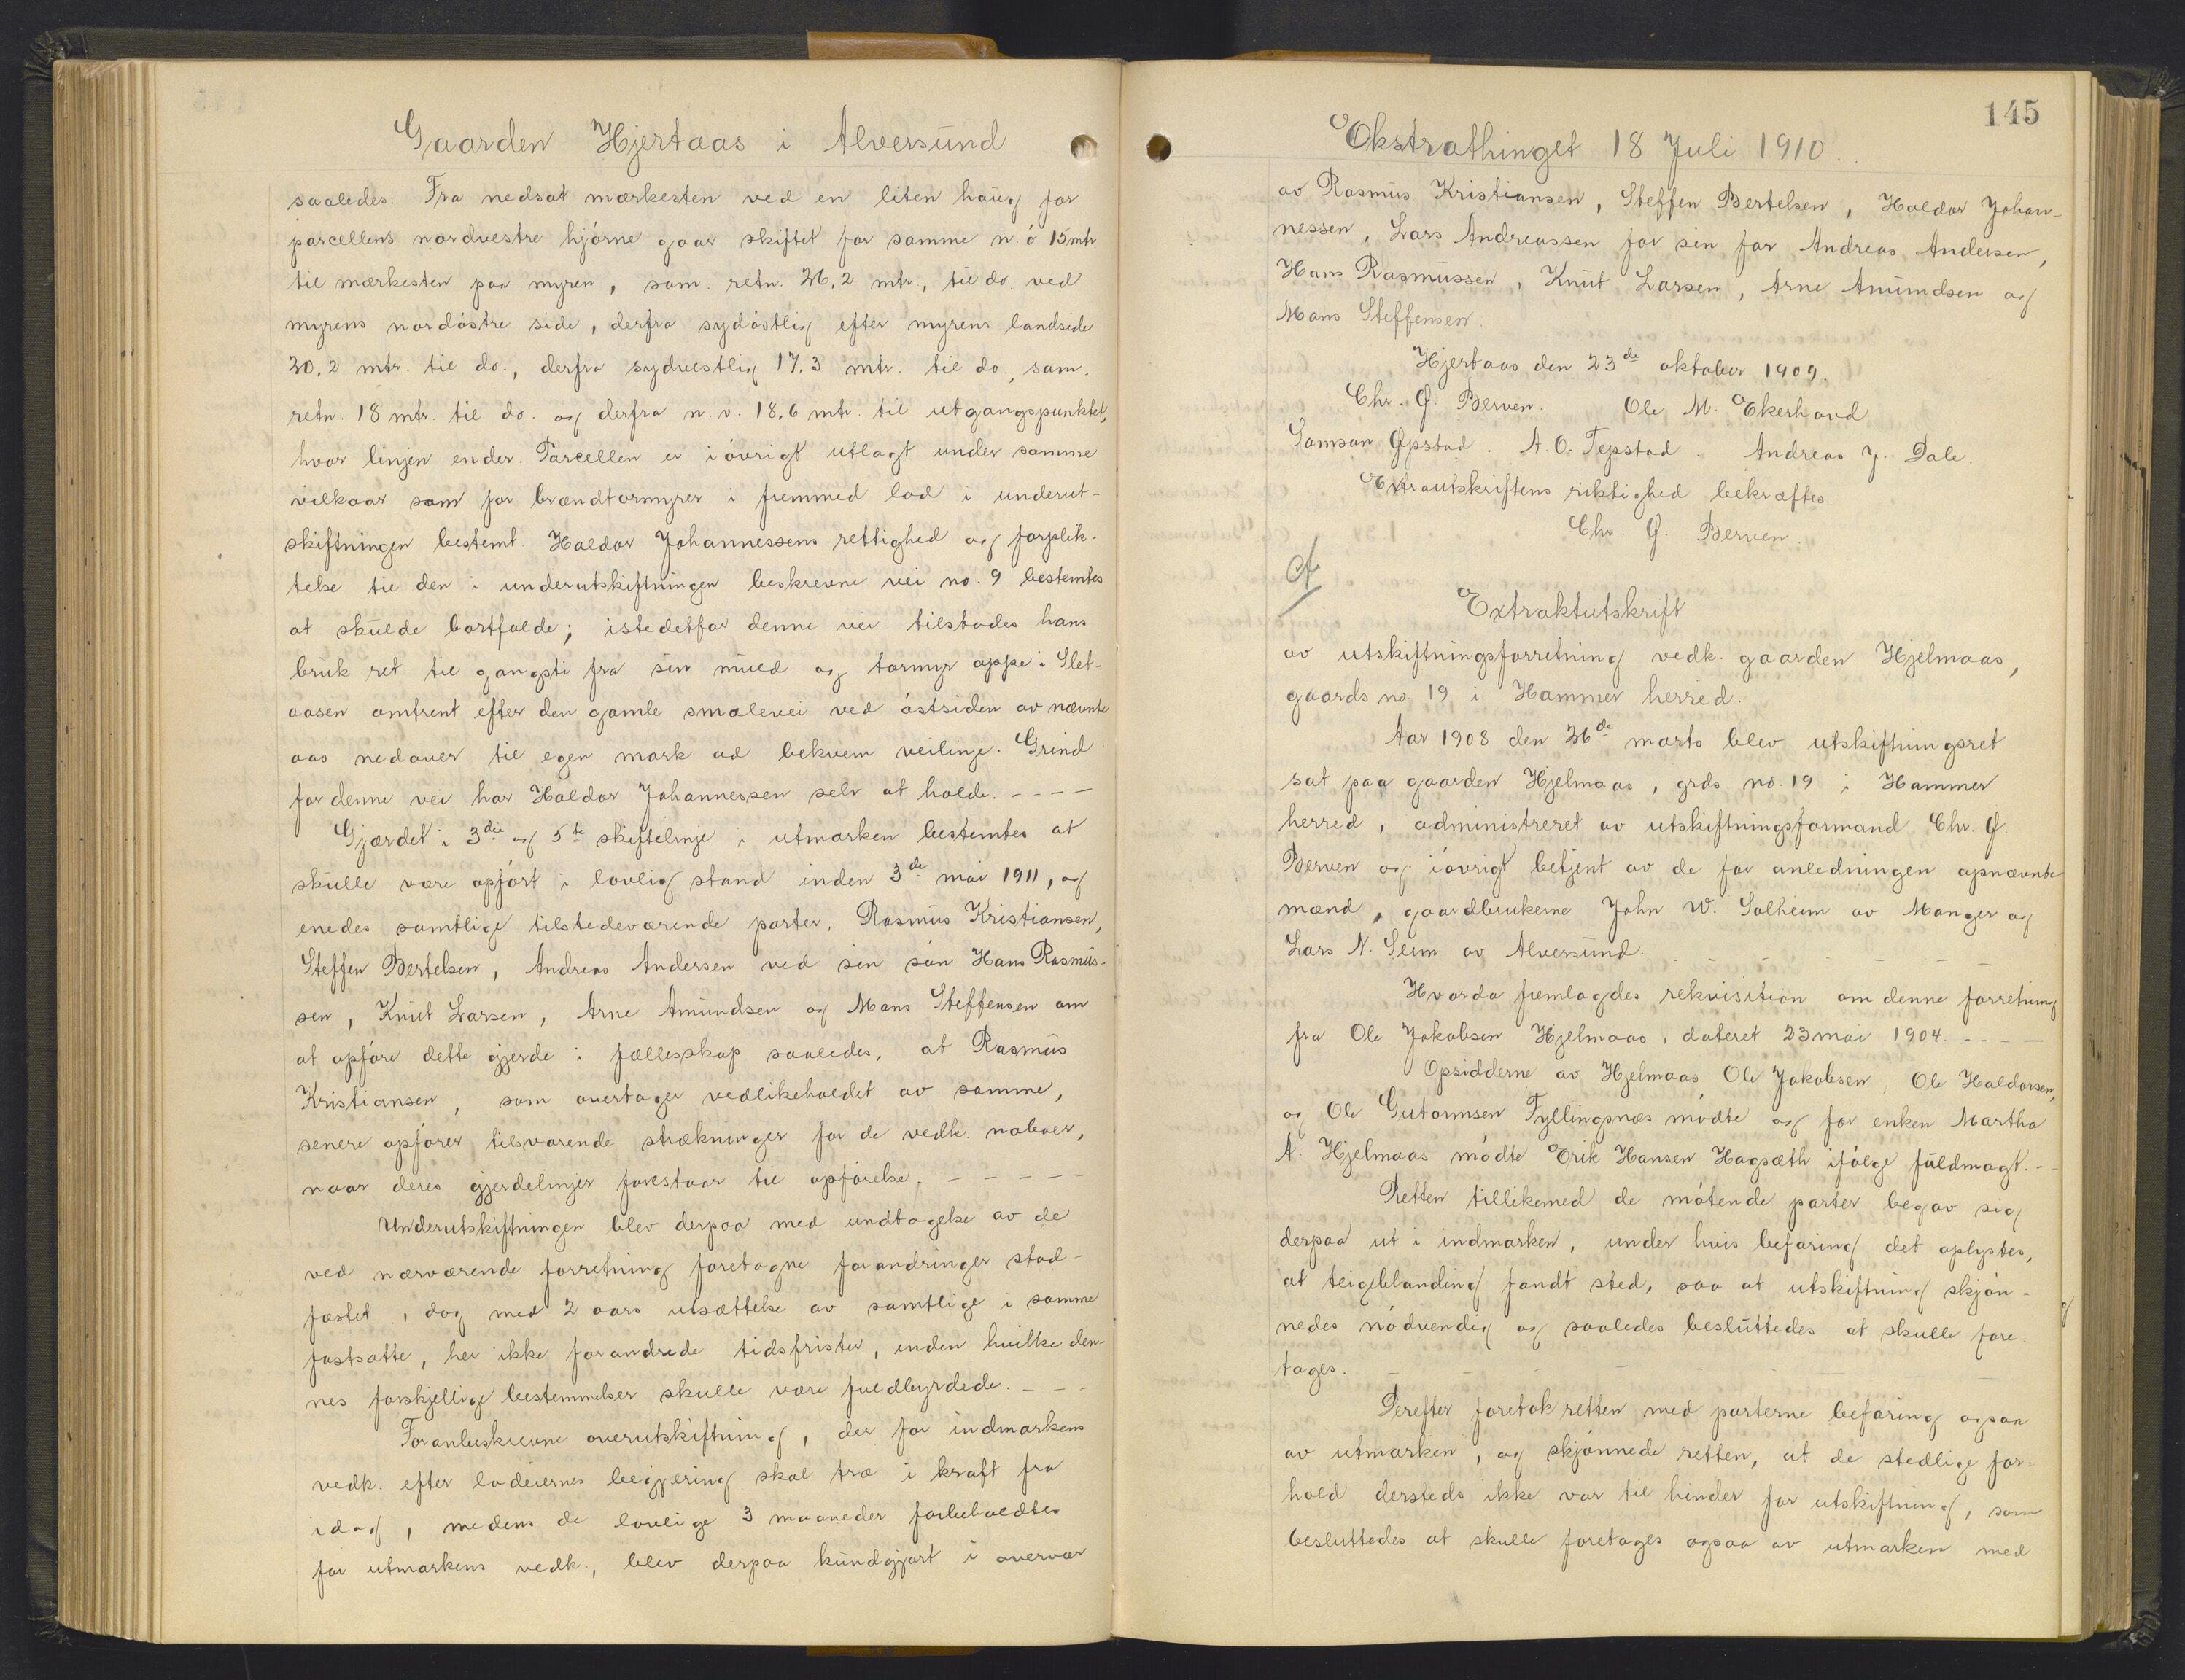 Gaarden Hjertaas i Alversund
saaledes: Fra nedsat mærkesten ved en liten haug for
parcellens nordvestre hjørne gaar skiftet for samme n.ø 15 mtr.
til mærkesten paa myren, sam. retn. 26,2 mtr., til do. ved
myrens nordøstre side, derfra sydøstlig efter myrens landside
20,2 mtr. til do., derfra sydvestlig 17,3 mtr. til do., sam.
retn. 18 mtr. til do. og derfra n.v. 18,6 mtr. til utgangspunktet,
hvor linjen ender. Parcellen er iøvrigt utlagt under samme
vilkaar som for brændtormyrer i fremmed lod i underut-
skiftningen bestemt. Haldor Johannessens rettighed og forplik-
telse til den i underutskiftningen beskrevne vei no. 9 bestemtes
at skulde bortfalde; istedetfor denne vei tilstodes hans
bruk ret til gangsti fra sin muld og tormyr oppe i Slet-
aasen omtrent efter den gamle smalevei ved østsiden av nævnte
aas nedover til egen mark ad bekvem veilinje. Grind
for denne vei har Haldor Johannessen selv at holde. ----
Gjærdet i 3die og 5te skiftelinje i utmarken bestemtes at
skulle være opført i lovlig stand inden 3de mai 1911, og
enedes samtlige tilstedeværende parter, Rasmus Kristiansen,
Steffen Bertelsen, Andreas Andersen ved sin søn Hans Rasmus-
sen, Knut Larsen, Arne Amundsen og Mons Steffensen om
at opføre dette gjerde i fællesskap saaledes, at Rasmus
Kristiansen, som overtager vedlikeholdet av samme,
senere opfører tilsvarende strækninger for de vedk. naboer,
naar deres gjerdelinjer forestaar til opførelse. -----
Underutskiftningen blev derpaa med undtagelse av de
ved nærværende forretning foretagne forandringer stad-
fæstet, dog med 2 aars utsættelse av samtlige i samme
fastsatte, her ikke forandrede tidsfrister, inden hvilke den-
nes forskjellige bestemmelser skulle være fuldbyrdede. ---
Foranbeskrevne overutskiftning, der for indmarkens
vedk. efter lodeiernes begjæring skal træ i kraft fra
idag, medens de lovlige 3 maaneder forbeholdtes
for utmarkens vedk., blev derpaa kundgjort i overvær
145
Ekstrathinget 18 Juli 1910.
av Rasmus Kristiansen, Steffen Bertelsen, Haldor Johan-
nessen, Lars Andreassen for sin far Andreas Andersen,
Hans Rasmussen, Knut Larsen, Arne Amundsen og
Mons Steffensen.
Hjertaas den 23de oktober 1909.
Chr. G. Berven. Ole M. Ekerhovd
Samson Gpstad. A. O. Tepstad. Andreas J. Dale.
Extrautskriftens riktighed bekræftes.
Chr. G. Berven.
Extraktutskrift
av utskiftningsforretning vedk. gaarden Hjelmaas,
gaards no. 19 i Hammer herred.
Aar 1908 den 26de marts blev utskiftningsret
sat paa gaarden Hjelmaas, grds no. 19 i Hammer
herred, administreret av utskiftningsformand Chr. G.
Berven og iøvrigt betjent av de for anledningen opnævnte
mænd, gaardbrukerne John W. Solheim av Manger og
Lars N. Seim av Alversund. - - - -
Hvorda fremlagdes rekvisition om denne forretning
fra Ole Jakobsen Hjelmaas, dateret 23 mai 1904. ----
Opsidderne av Hjelmaas Ole Jakobsen, Ole Haldorsen,
og Ole Gutormsen Fyllingsnæs mødte og for enken Martha
A. Hjelmaas mødte Erik Hansen Hagsæth ifølge fuldmagt. --
Retten tillikemed de møtende parter begav sig
derpaa ut i indmarken, under hvis befaring det oplystes,
at teigeblanding fandt sted, saa at utskiftning skjøn-
nedes nødvendig og saaledes besluttedes at skulle fore-
tages. - - - -
Derefter foretok retten med parterne befaring ogsaa
av utmarken, og skjønnede retten, at de stedlige for-
hold dersteds ikke var til hinder for utskiftning, som
besluttedes at skulle foretages ogsaa av utmarken med